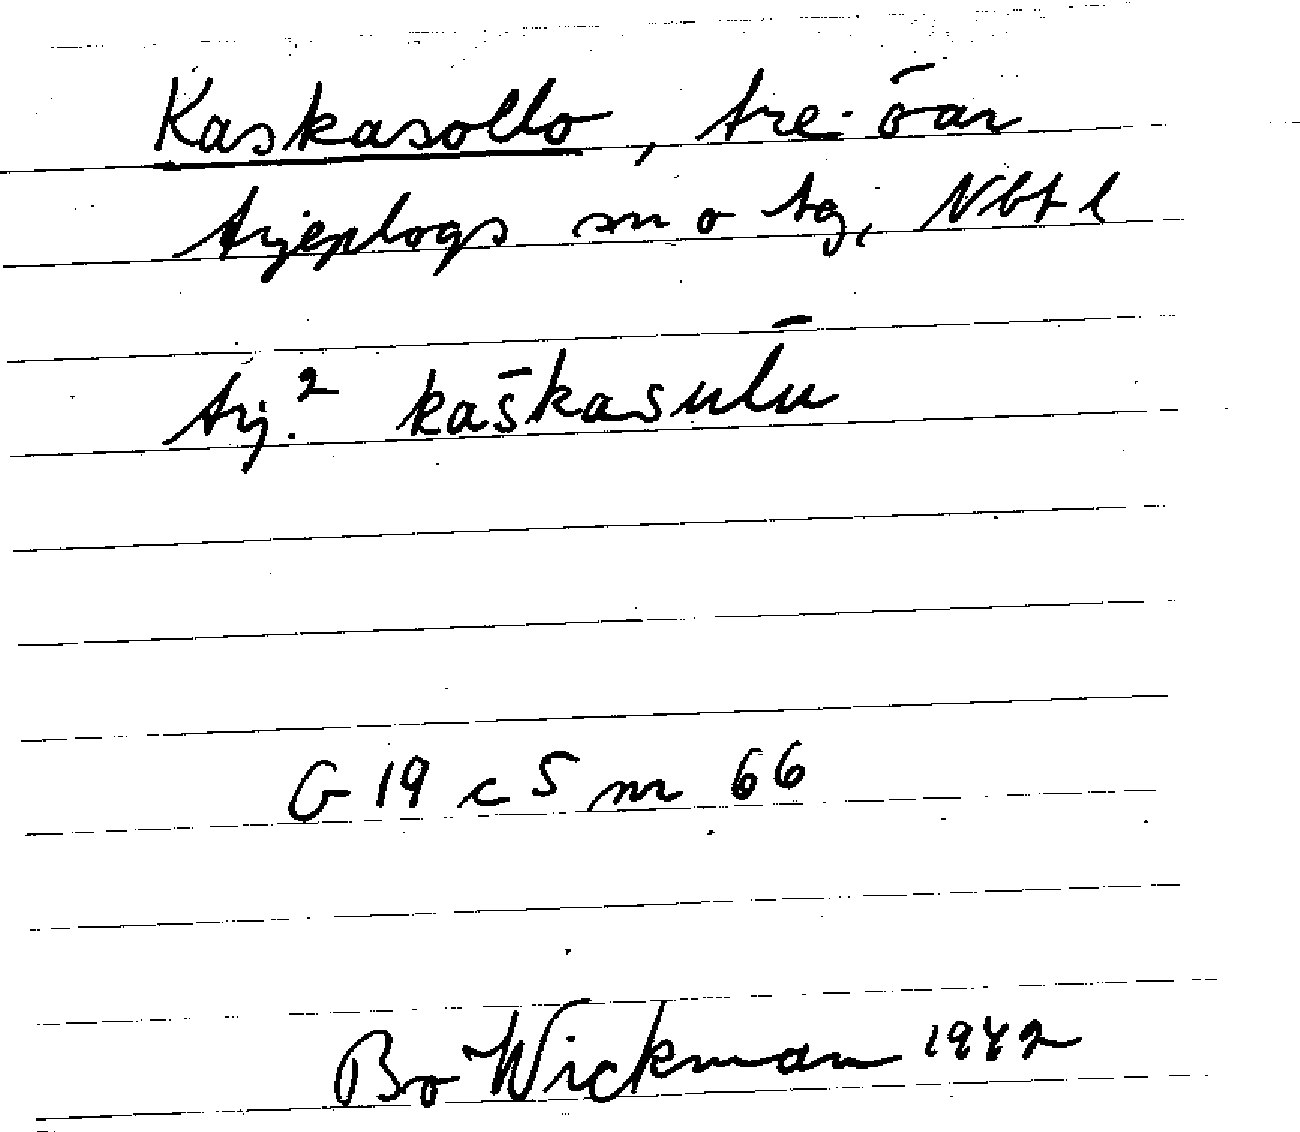 Kaskasollo, tre öar
Arjeplogs sn o tg, Nbt l
Arj.² kas̄kasulū
G 19 c 5 nr 66
Bo Wickman 1942